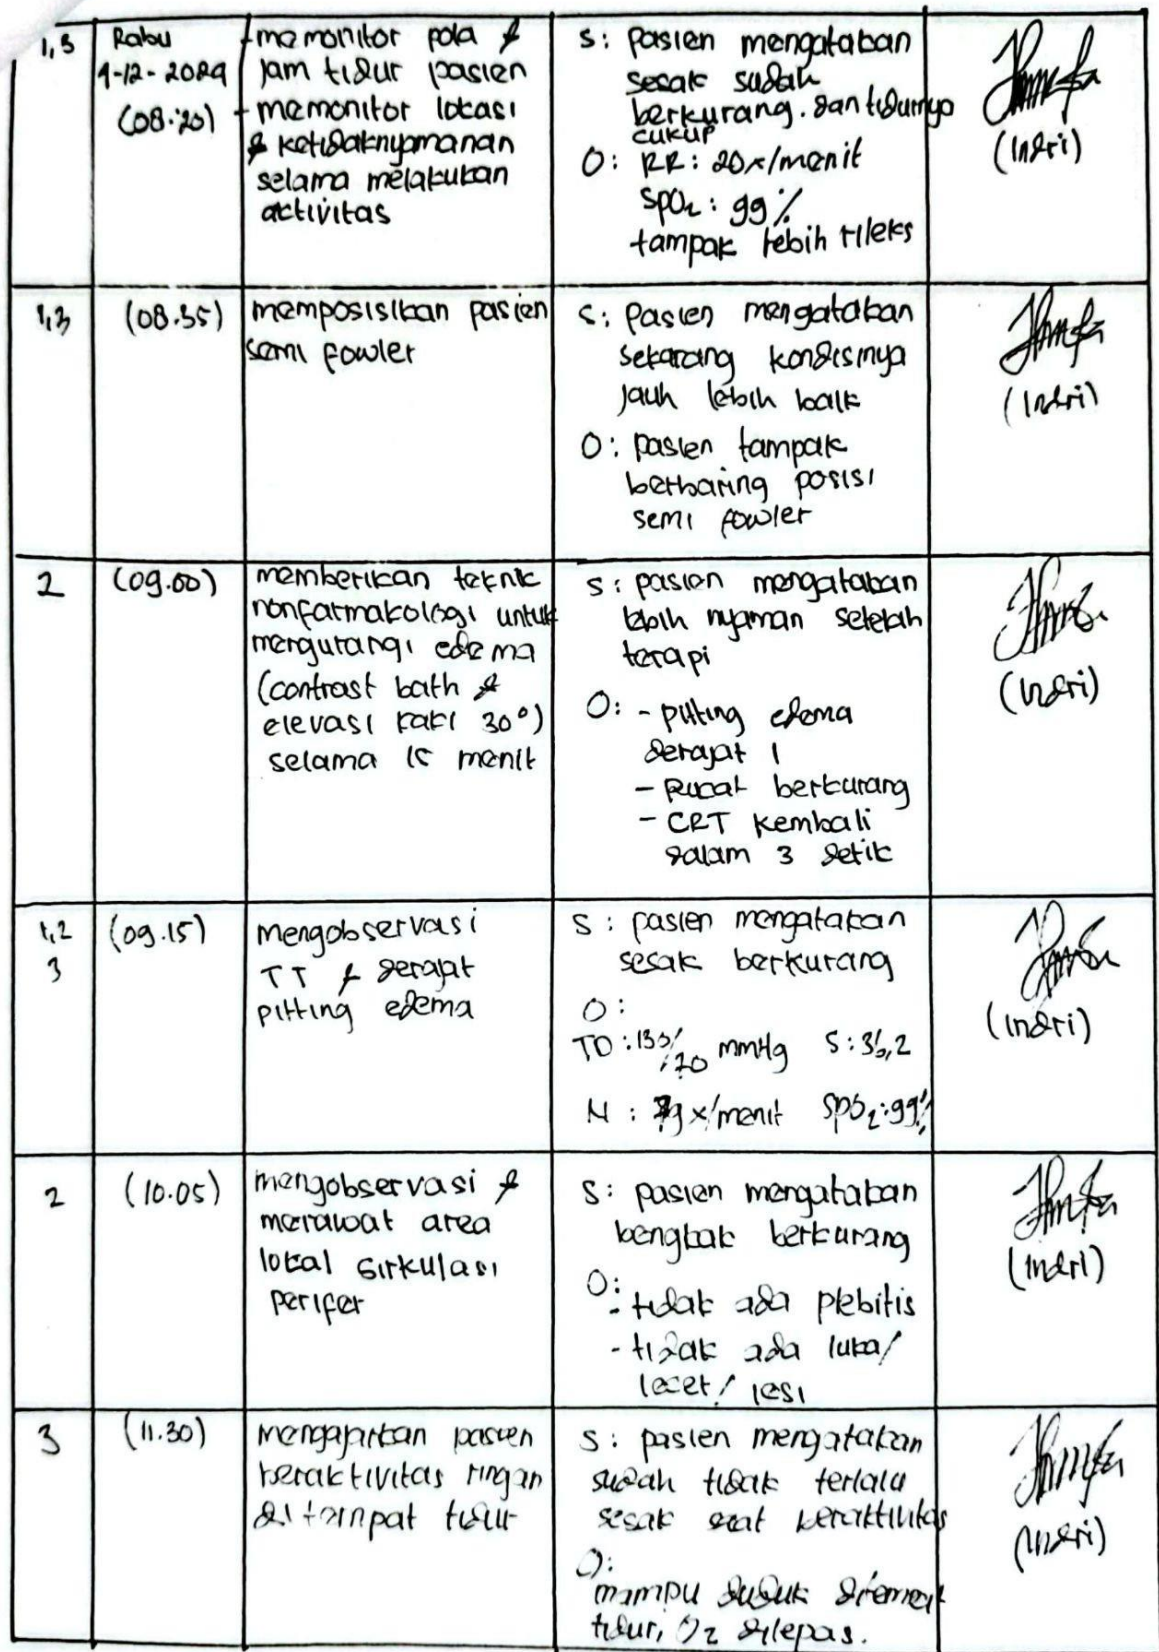 1,3
Rabu
4-12-2024
(08.20)
- memonitor pola &
jam tidur pasien
- memonitor lokasi
& ketidaknyamanan
selama melakukan
activitas
S: pasien mengatakan
sesak sudah
berkurang. dan tidurnya
cukup
O: RR: 20x/menit
SpO2: 99%
tampak lebih rileks
(Indri)
1,3
(08.35)
memposisikan pasien
semi fowler
S: pasien mengatakan
sekarang kondisinya
jauh lebih baik
O: pasien tampak
berbaring posisi
semi fowler
(Indri)
2
(09.00)
memberikan teknik
nonfarmakologi untuk
mengurangi edema
(contrast bath &
elevasi kaki 30°)
selama 15 menit
S: pasien mengatakan
lebih nyaman setelah
terapi
O: - pitting edema
derajat 1
- pucat berkurang
- CRT kembali
dalam 3 detik
(Indri)
1,2
3
(09.15)
mengobservasi
TT & derajat
pitting edema
S: pasien mengatakan
sesak berkurang
O:
TD: mmHg S: 36,2
N: x/menit SpO2: 99%
(Indri)
2
(10.05)
mengobservasi &
merawat area
lokal sirkulasi
perifer
S: pasien mengatakan
bengkak berkurang
O:
- tidak ada plebitis
- tidak ada luka/
lecet/ lesi
(Indri)
3
(11.30)
mengajarkan pasien
beraktivitas ringan
di tempat tidur
S: pasien mengatakan
sudah tidak terlalu
sesak saat beraktivitas
O:
mampu duduk
tidur, O2 dilepas.
(Indri)